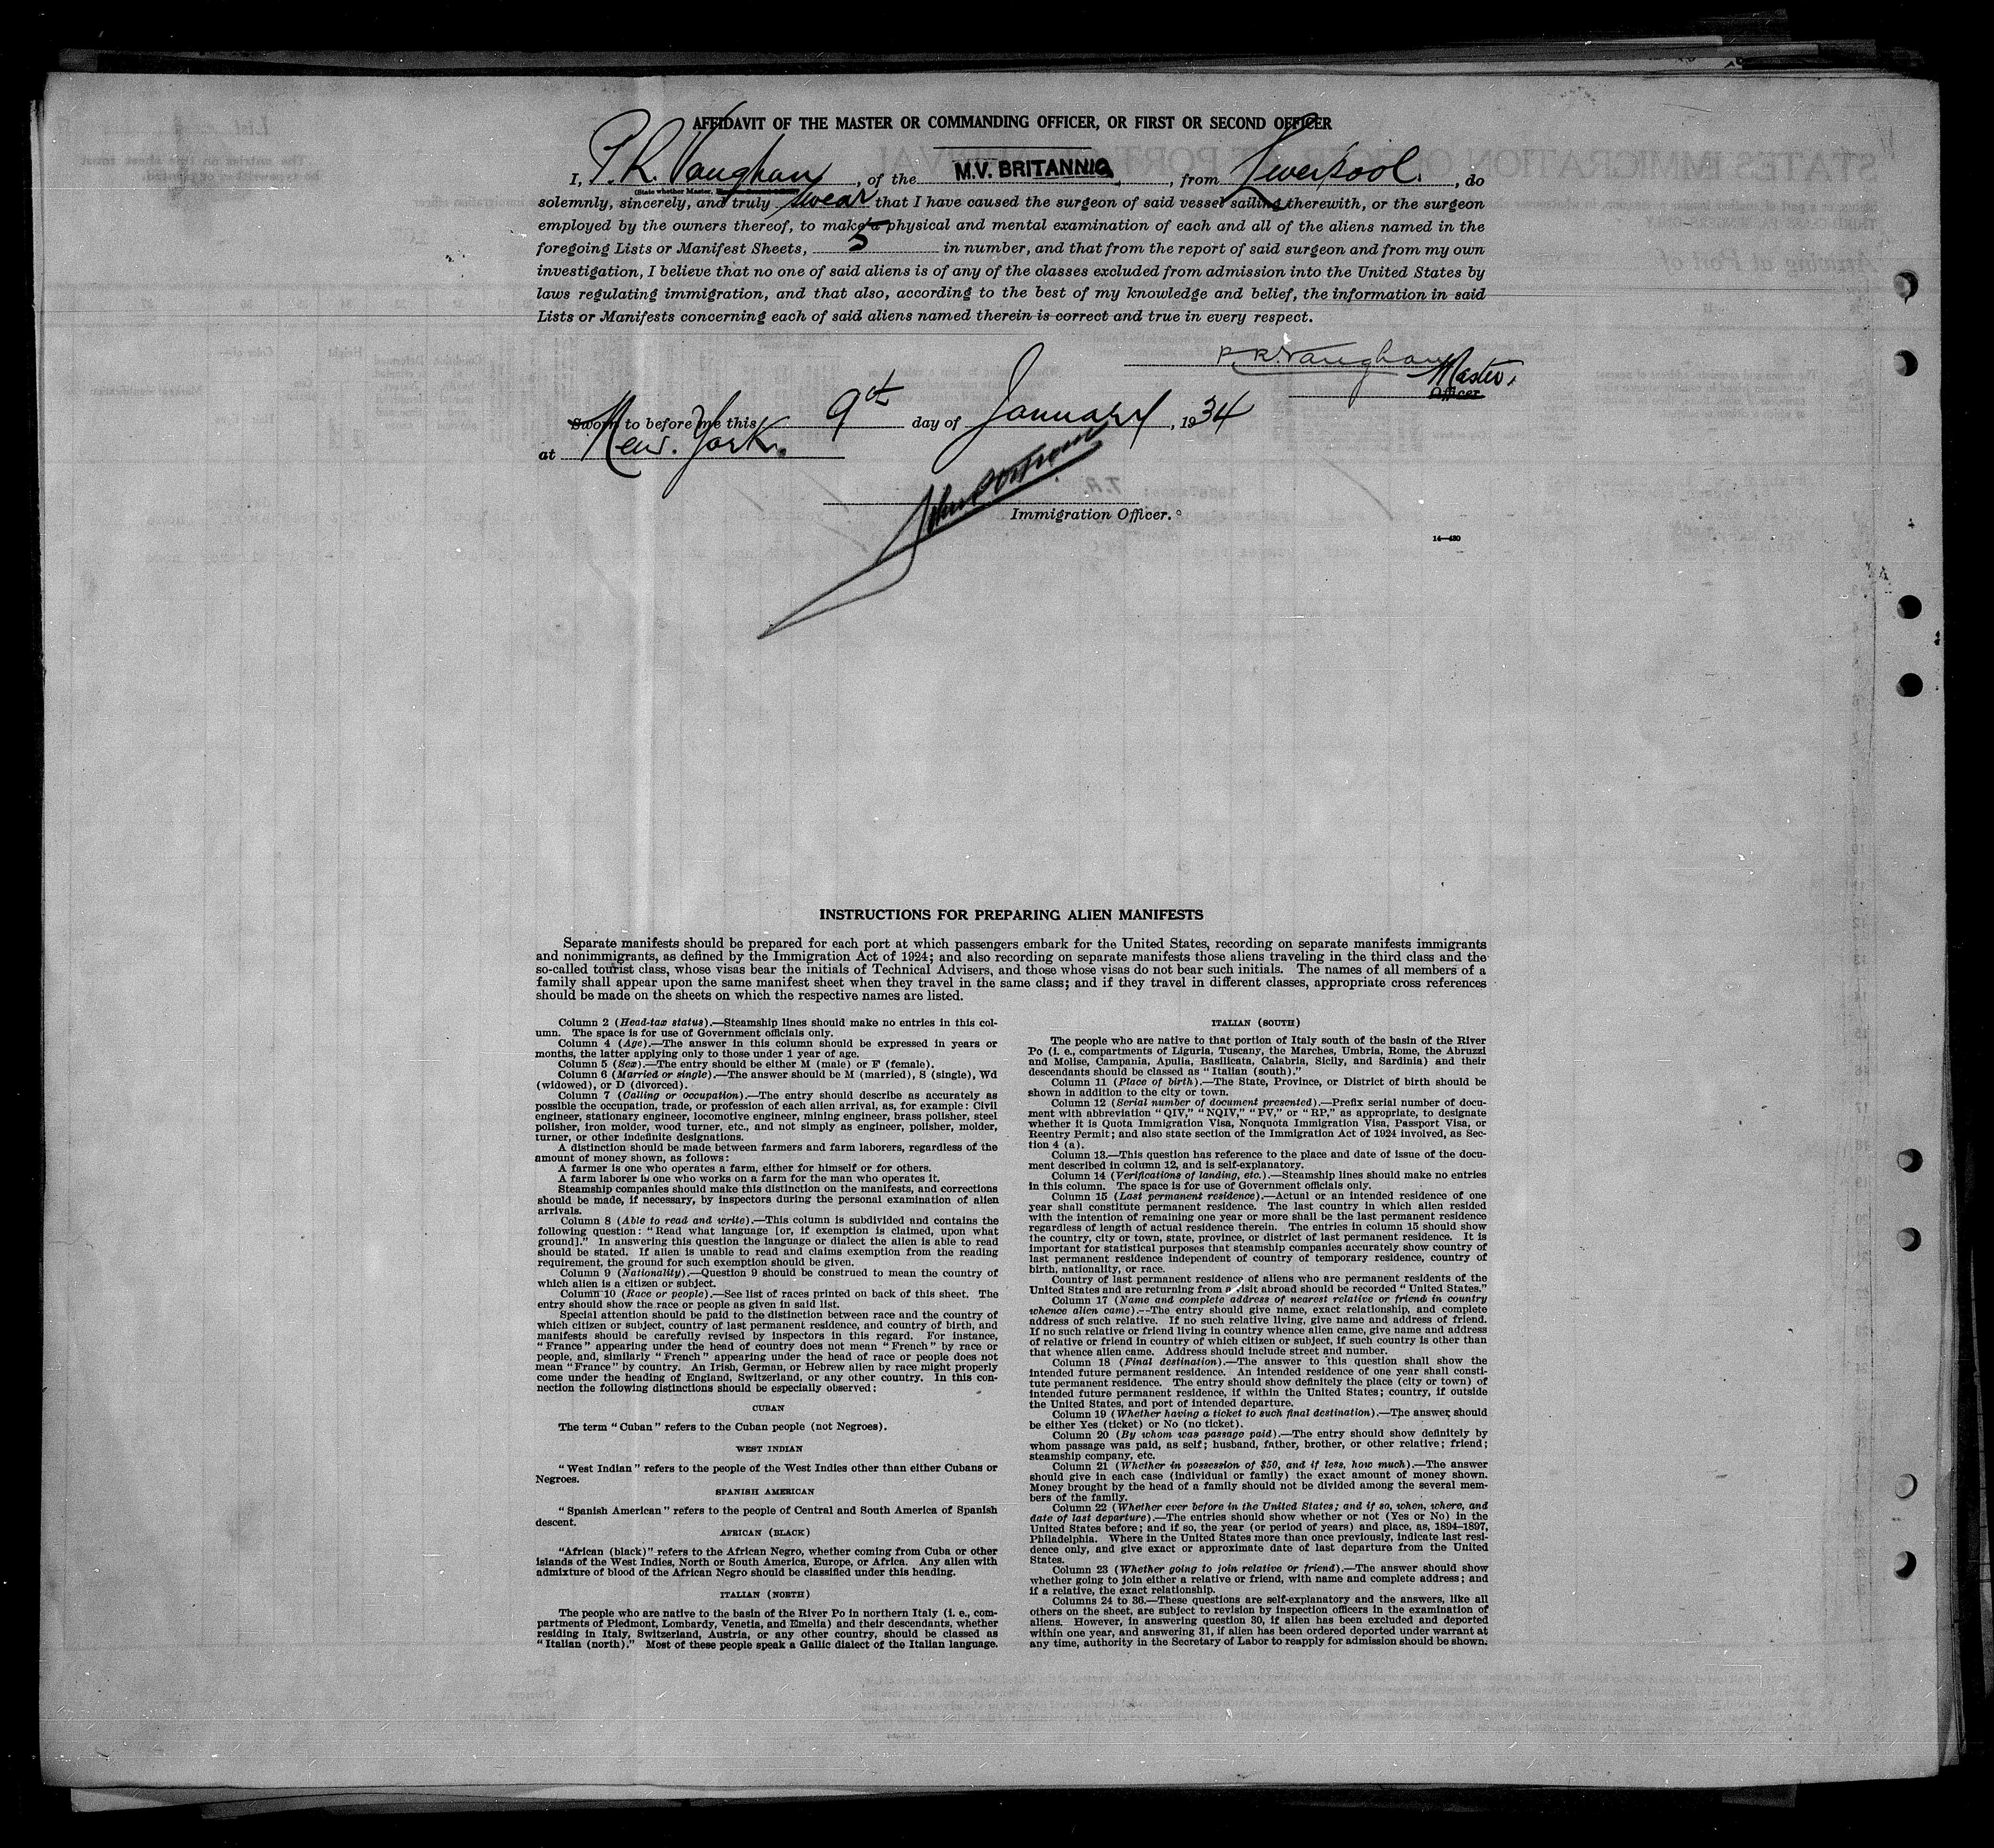 AFFIDAVIT OF THE MASTER OR COMMANDING OFFICER, OR FIRST OR SECOND OFFICER
I, P.R. Vaughan, of the M.V. BRITANNIC, from Liverpool., do
(State whether Master,
solemnly, sincerely, and truly swear that I have caused the surgeon of said vessel sailing therewith, or the surgeon
employed by the owners thereof, to make a physical and mental examination of each and all of the aliens named in the
foregoing Lists or Manifest Sheets, 5 in number, and that from the report of said surgeon and from my own
investigation, I believe that no one of said aliens is of any of the classes excluded from admission into the United States by
laws regulating immigration, and that also, according to the best of my knowledge and belief, the information in said
Lists or Manifests concerning each of said aliens named therein is correct and true in every respect.
P. R. Vaughan
Master.
Officer.
Sworn to before me this 9th day of January, 1934
at New York.
Immigration Officer.
14—480
INSTRUCTIONS FOR PREPARING ALIEN MANIFESTS
Separate manifests should be prepared for each port at which passengers embark for the United States, recording on separate manifests immigrants
and nonimmigrants, as defined by the Immigration Act of 1924; and also recording on separate manifests those aliens traveling in the third class and the
so-called tourist class, whose visas bear the initials of Technical Advisers, and those whose visas do not bear such initials. The names of all members of a
family shall appear upon the same manifest sheet when they travel in the same class; and if they travel in different classes, appropriate cross references
should be made on the sheets on which the respective names are listed.
Column 2 (Head-tax status).—Steamship lines should make no entries in this col-
umn. The space is for use of Government officials only.
Column 4 (Age).—The answer in this column should be expressed in years or
months, the latter applying only to those under 1 year of age.
Column 5 (Sex).—The entry should be either M (male) or F (female).
Column 6 (Married or single).—The answer should be M (married), S (single), Wd
(widowed), or D (divorced).
Column 7 (Calling or occupation).—The entry should describe as accurately as
possible the occupation, trade, or profession of each alien arrival, as, for example: Civil
engineer, stationary engineer, locomotive engineer, mining engineer, brass polisher, steel
polisher, iron molder, wood turner, etc., and not simply as engineer, polisher, molder,
turner, or other indefinite designations.
A distinction should be made between farmers and farm laborers, regardless of the
amount of money shown, as follows:
A farmer is one who operates a farm, either for himself or for others.
A farm laborer is one who works on a farm for the man who operates it.
Steamship companies should make this distinction on the manifests, and corrections
should be made, if necessary, by inspectors during the personal examination of alien
arrivals.
Column 8 (Able to read and write).—This column is subdivided and contains the
following question: "Read what language [or, if exemption is claimed, upon what
ground]." In answering this question the language or dialect the alien is able to read
should be stated. If alien is unable to read and claims exemption from the reading
requirement, the ground for such exemption should be given.
Column 9 (Nationality).—Question 9 should be construed to mean the country of
which alien is a citizen or subject.
Column 10 (Race or people).—See list of races printed on back of this sheet. The
entry should show the race or people as given in said list.
Special attention should be paid to the distinction between race and the country of
which citizen or subject, country of last permanent residence, and country of birth, and
manifests should be carefully revised by inspectors in this regard. For instance,
"France" appearing under the head of country does not mean "French" by race or
people, and, similarly "French" appearing under the head of race or people does not
mean "France" by country. An Irish, German, or Hebrew alien by race might properly
come under the heading of England, Switzerland, or any other country. In this con-
nection the following distinctions should be especially observed:
CUBAN
The term "Cuban" refers to the Cuban people (not Negroes).
WEST INDIAN
"West Indian" refers to the people of the West Indies other than either Cubans or
Negroes.
SPANISH AMERICAN
"Spanish American" refers to the people of Central and South America of Spanish
descent.
AFRICAN (BLACK)
"African (black)" refers to the African Negro, whether coming from Cuba or other
islands of the West Indies, North or South America, Europe, or Africa. Any alien with
admixture of blood of the African Negro should be classified under this heading.
ITALIAN (NORTH)
The people who are native to the basin of the River Po in northern Italy (i. e., com-
partments of Piedmont, Lombardy, Venetia, and Emelia) and their descendants, whether
residing in Italy, Switzerland, Austria, or any other country, should be classed as
"Italian (north)." Most of these people speak a Gallic dialect of the Italian language.
ITALIAN (SOUTH)
The people who are native to that portion of Italy south of the basin of the River
Po (i. e., compartments of Liguria, Tuscany, the Marches, Umbria, Rome, the Abruzzi
and Molise, Campania, Apulia, Basilicata, Calabria, Sicily, and Sardinia) and their
descendants should be classed as "Italian (south)."
Column 11 (Place of birth).—The State, Province, or District of birth should be
shown in addition to the city or town.
Column 12 (Serial number of document presented).—Prefix serial number of docu-
ment with abbreviation "QIV," "NQIV," "PV," or "RP," as appropriate, to designate
whether it is Quota Immigration Visa, Nonquota Immigration Visa, Passport Visa, or
Reentry Permit; and also state section of the Immigration Act of 1924 involved, as Sec-
tion 4 (a).
Column 13.—This question has reference to the place and date of issue of the docu-
ment described in column 12, and is self-explanatory.
Column 14 (Verifications of landing, etc.).—Steamship lines should make no entries
in this column. The space is for use of Government officials only.
Column 15 (Last permanent residence).—Actual or an intended residence of one
year shall constitute permanent residence. The last country in which alien resided
with the intention of remaining one year or more shall be the last permanent residence
regardless of length of actual residence therein. The entries in column 15 should show
the country, city or town, state, province, or district of last permanent residence. It is
important for statistical purposes that steamship companies accurately show country of
last permanent residence independent of country of temporary residence, country of
birth, nationality, or race.
Country of last permanent residence of aliens who are permanent residents of the
United States and are returning from a visit abroad should be recorded "United States."
Column 17 (Name and complete address of nearest relative or friend in country
whence alien came).—The entry should give name, exact relationship, and complete
address of such relative. If no such relative living, give name and address of friend.
If no such relative or friend living in country whence alien came, give name and address
of relative or friend in country of which citizen or subject, if such country is other than
that whence alien came. Address should include street and number.
Column 18 (Final destination).—The answer to this question shall show the
intended future permanent residence. An intended residence of one year shall consti-
tute permanent residence. The entry should show definitely the place (city or town) of
intended future permanent residence, if within the United States; country, if outside
the United States, and port of intended departure.
Column 19 (Whether having a ticket to such final destination).—The answer should
be either Yes (ticket) or No (no ticket).
Column 20 (By whom was passage paid).—The entry should show definitely by
whom passage was paid, as self; husband, father, brother, or other relative; friend;
steamship company, etc.
Column 21 (Whether in possession of $50, and if less, how much).—The answer
should give in each case (individual or family) the exact amount of money shown.
Money brought by the head of a family should not be divided among the several mem-
bers of the family.
Column 22 (Whether ever before in the United States; and if so, when, where, and
date of last departure).—The entries should show whether or not (Yes or No) in the
United States before; and if so, the year (or period of years) and place, as, 1894-1897,
Philadelphia. Where in the United States more than once previously, indicate last resi-
dence only, and give exact or approximate date of last departure from the United
States.
Column 23 (Whether going to join relative or friend).—The answer should show
whether going to join either a relative or friend, with name and complete address; and
if a relative, the exact relationship.
Columns 24 to 36.—These questions are self-explanatory and the answers, like all
others on the sheet, are subject to revision by inspection officers in the examination of
aliens. However, in answering question 30, if alien has been excluded and deported
within one year, and answering 31, if alien has been ordered deported under warrant at
any time, authority in the Secretary of Labor to reapply for admission should be shown.